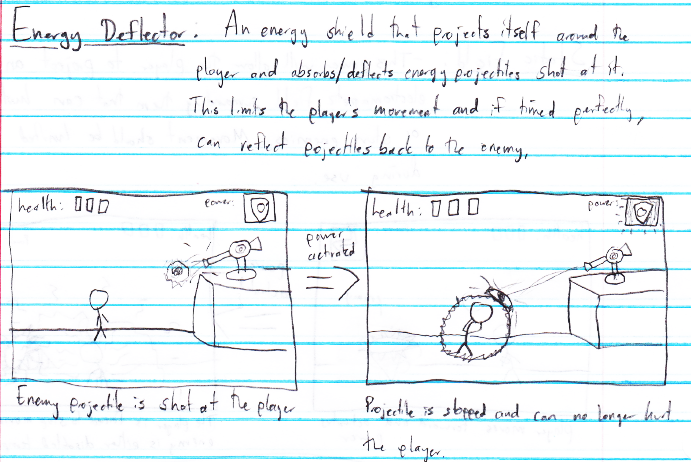 Energy Deflector. An energy shield that projects itself around the
player and absorbs/deflects energy projectiles shot at it.
This limits the player's movement and if timed perfectly,
can reflect projectiles back to the enemy.
health:
power:
power
activated
health:
power:
Enemy projectile is shot at the player
Projectile is stopped and can no longer hurt
the player.